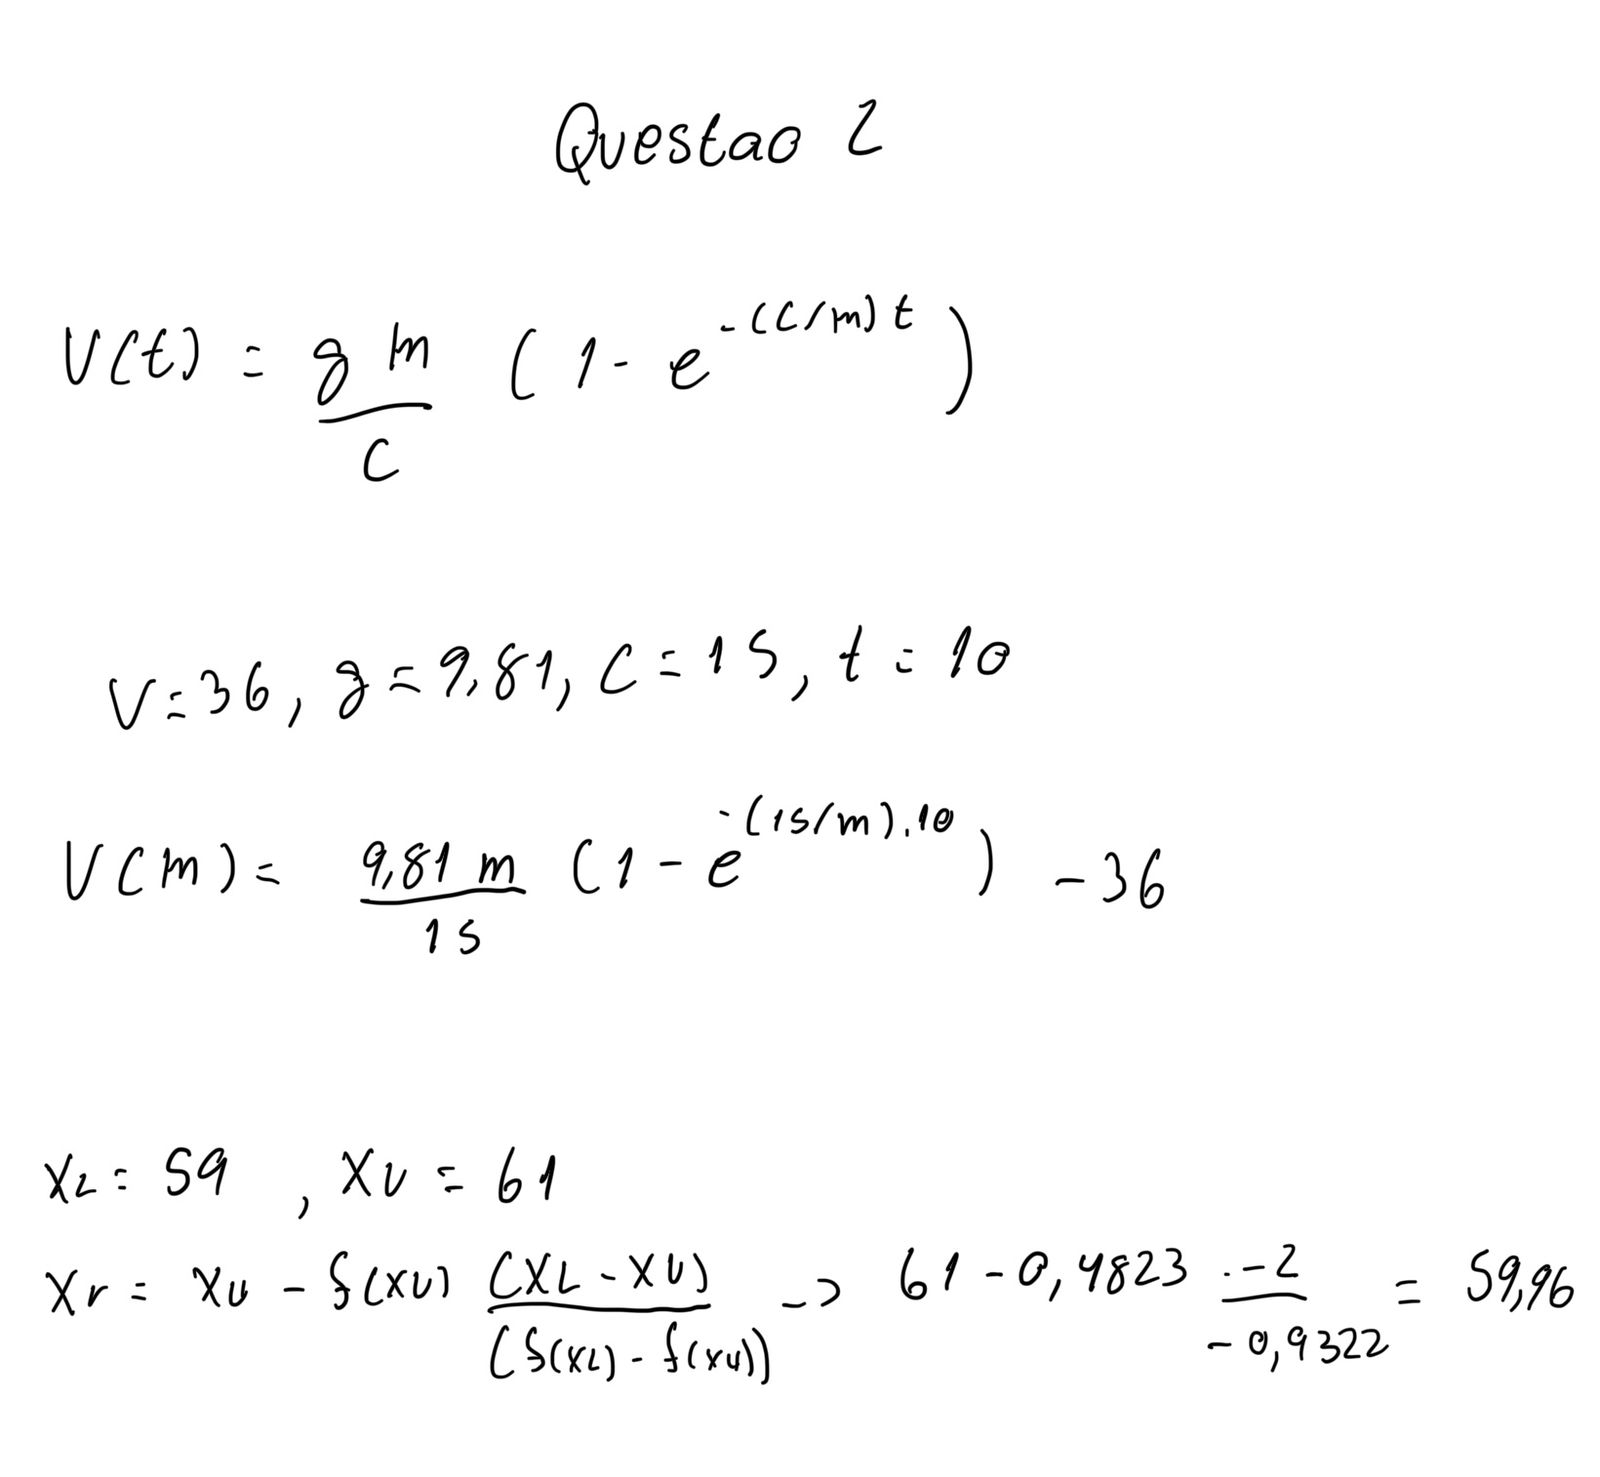 Questao 2
V(t) = g m / c (1 - e^-(c/m)t)
V=36, g=9,81, c=15, t=10
V(m) = 9,81 m / 15 (1 - e^-(15/m).10) - 36
XL = 59 , XU = 61
Xr = XU - f(XU) (XL - XU) / (f(XL) - f(XU)) -> 61 - 0,4823 . -2 / -0,9322 = 59,96